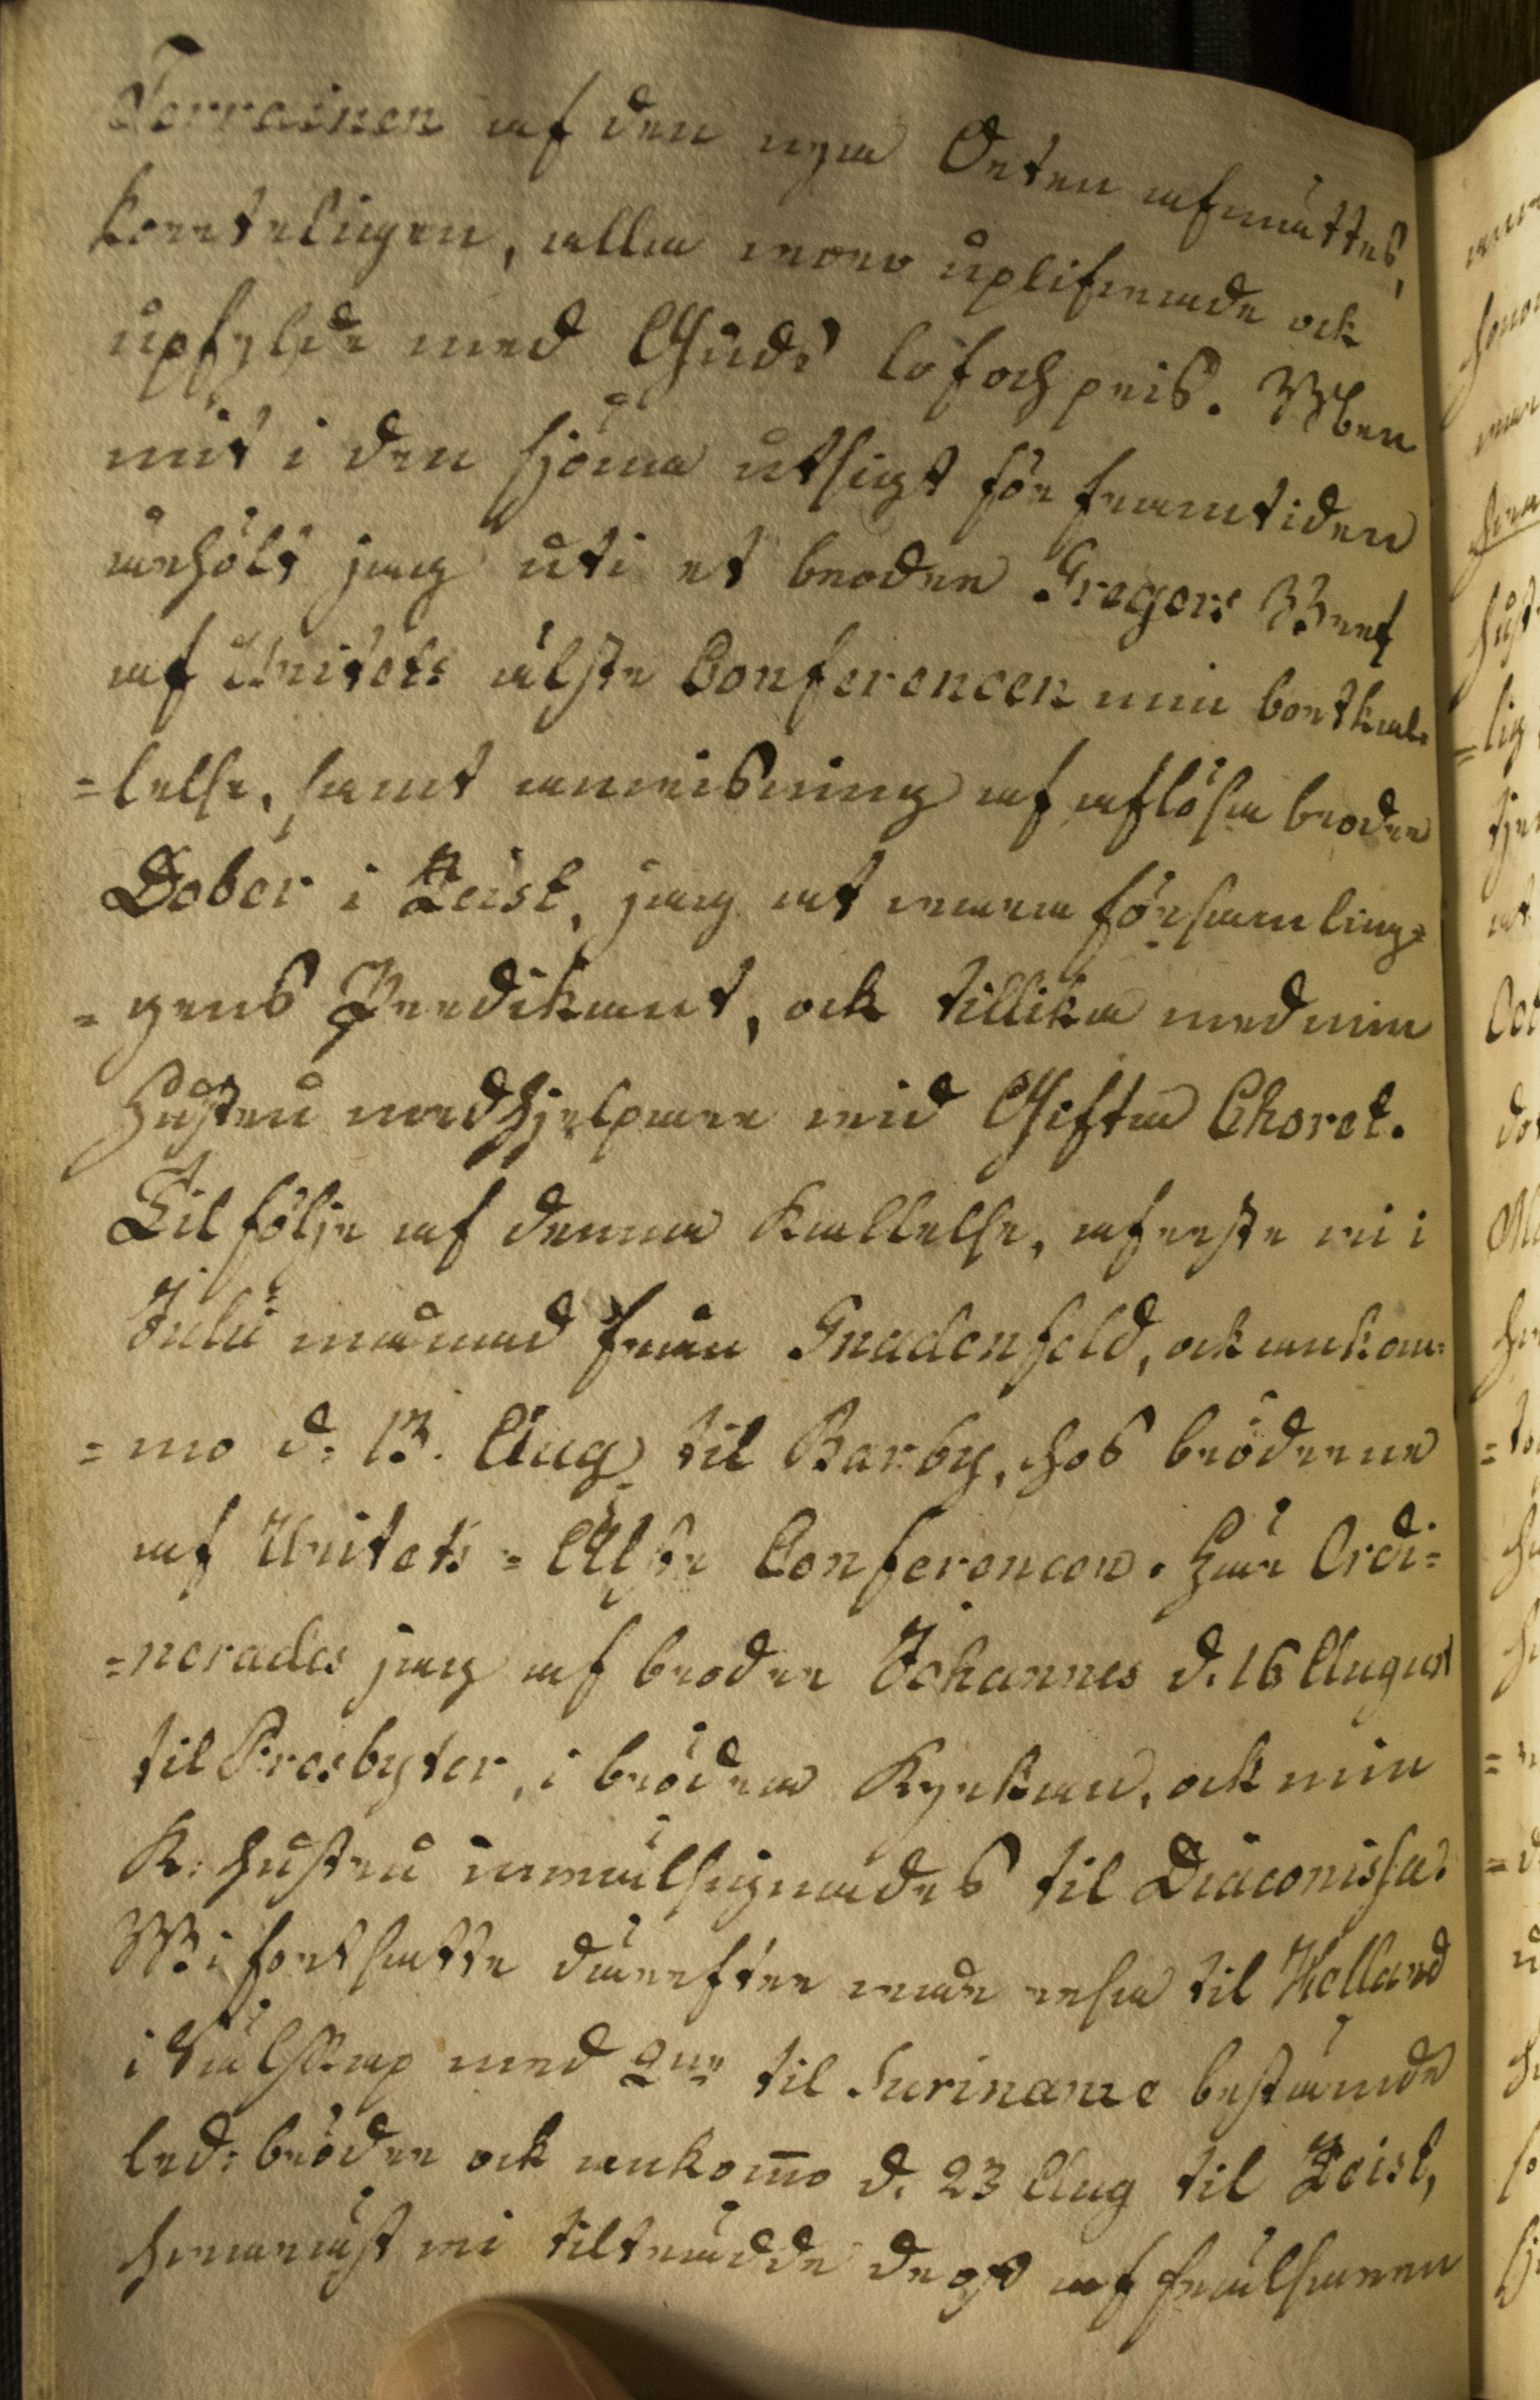 Terrainen af den nya Orten afmättes,
korteligen, alla woro uplifwade ock
upfylde med Guds lof och pris. Men
mit i den sköna utsigt för framtiden
erhölt jag uti et broder Gregors Bref
af Unitets älste Conferencen min bortkal-
=lelse, samt anwisning af aflösa broder
Dober i Zeist, jag at wara församling=
=gens Predikant, ock tillika med min
hustru medhjelpare wid Gifta Choret.
Til följe af denna kallelse, afreste wi i
Julii månad från Gnadenfeld, ock ankom=
=mo d. 13. Aug. til Barby, hos bröderne
af Unitets=Älste Conferencen. Här Ordi=
=nerades jag af broder Johannes d. 16 August
til Presbyter, i brödra Kyrkan, ock min
K: hustru inwälsignades til Diaconissa.
Wi fortsatte därefter wår resa til Holland
i sälskap med 2ne til Suriname bestämde
led: bröder ock ankomo d. 23 Aug til Zeist,
hwarest wi tilträdde det af frälsaren